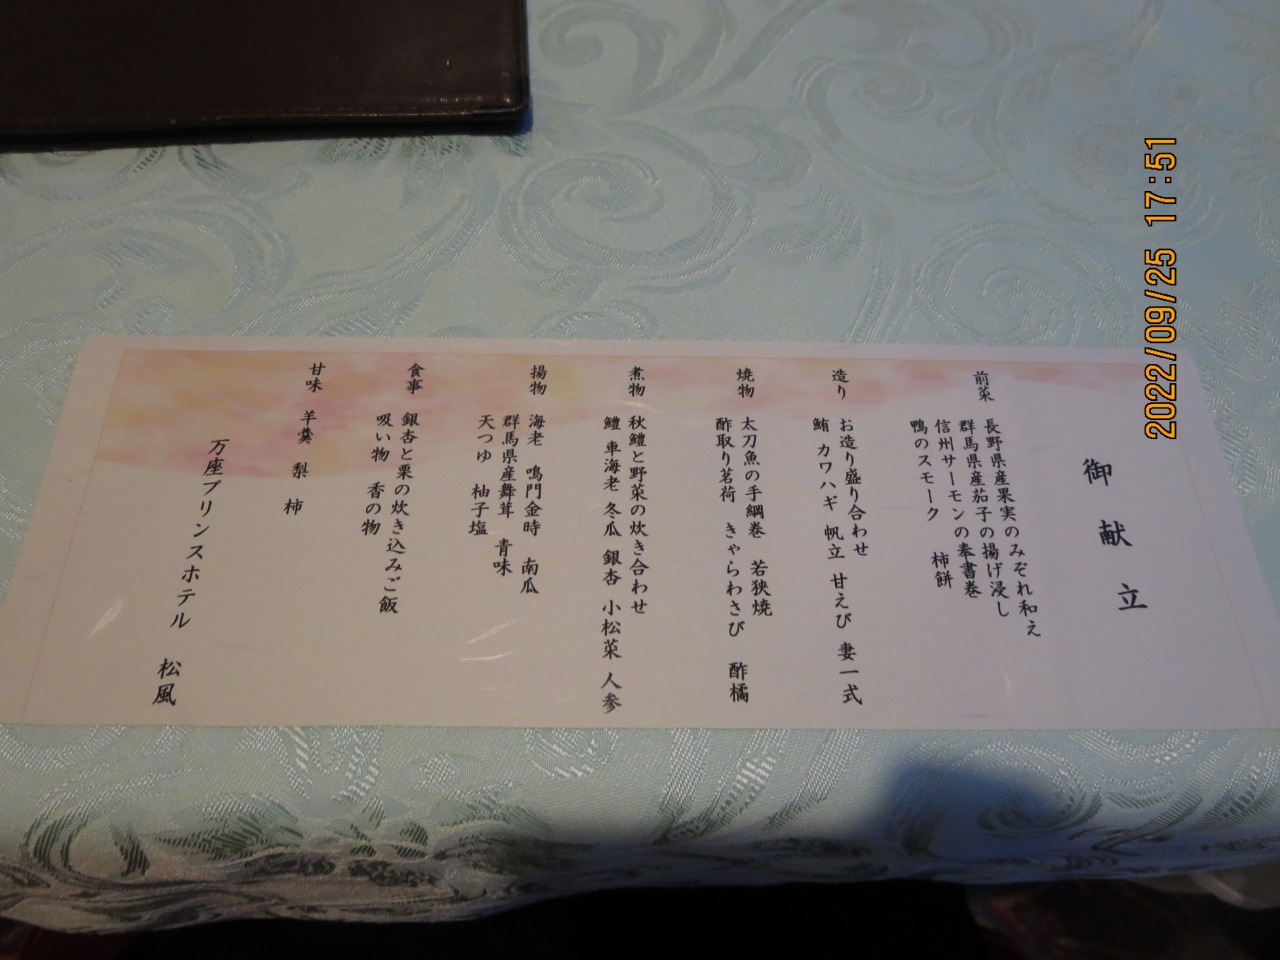 御献立
前菜
長野県産果実のみぞれ和え
群馬県産茄子の揚げ浸し
信州サーモンの奉書巻
鴨のスモーク 柿餅
造り
お造り盛り合わせ
鮪 カワハギ 帆立 甘えび 妻一式
焼物
太刀魚の手綱巻 若狭焼
酢取り茗荷 きゃらわさび 酢橘
煮物
秋鱧と野菜の炊き合わせ
鱧 車海老 冬瓜 銀杏 小松菜 人参
揚物
海老 鳴門金時 南瓜
群馬県産舞茸 青味
天つゆ 柚子塩
食事
銀杏と栗の炊き込みご飯
吸い物 香の物
甘味 羊羹 梨 柿
万座プリンスホテル 松風
2022/09/25 17:51